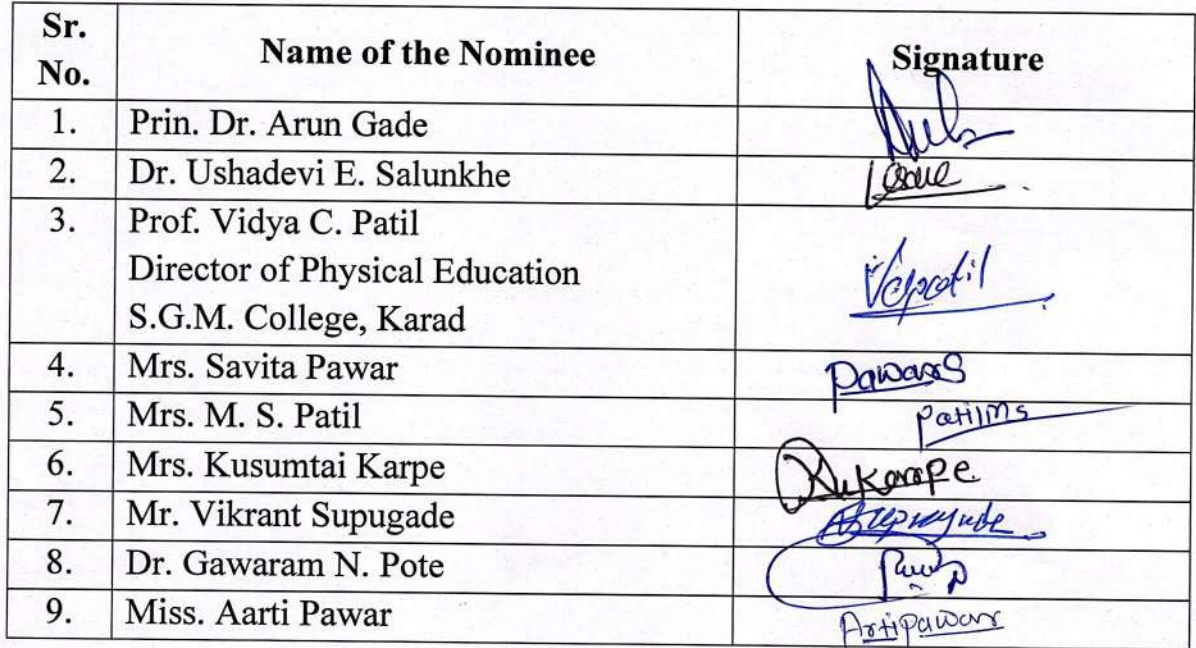 Sr. No. Name of the Nominee Signature
1. Prin. Dr. Arun Gade
2. Dr. Ushadevi E. Salunkhe
3. Prof. Vidya C. Patil
Director of Physical Education
S.G.M. College, Karad Vcpatil
4. Mrs. Savita Pawar PawarS
5. Mrs. M. S. Patil Patilms
6. Mrs. Kusumtai Karpe
7. Mr. Vikrant Supugade
8. Dr. Gawaram N. Pote
9. Miss. Aarti Pawar Artipawar